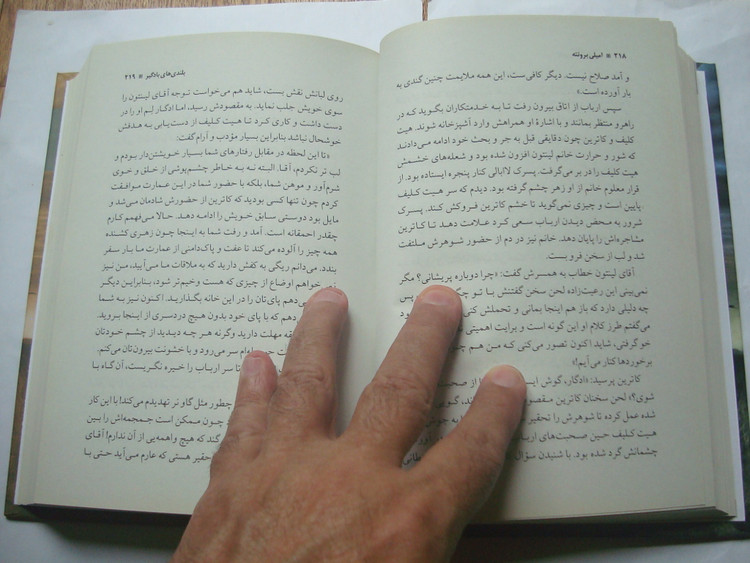 ۲۱۸ * امیلی برونته
و آمد صلاح نیست. دیگر کافی‌ست، این همه ملایمت چنین گندی به
بار آورده است.»
سپس ارباب از اتاق بیرون رفت تا به خدمتکاران بگوید که در
راهرو منتظر بمانند و با اشارهٔ او همراهش وارد آشپزخانه شوند. هیت
کلیف و کاترین چون دقایقی قبل به جر و بحث خود ادامه می‌دادند
که شور و حرارت خانم لینتون افزون شده بود و شعله‌های خشمش
هیت کلیف را در بر می‌گرفت. پسرک لاابالی کنار پنجره ایستاده بود. از
قرار معلوم خانم از او زهر چشم گرفته بود. دیدم که سر هیت کلیف
پایین است و چیزی نمی‌گوید تا خشم کاترین فروکش کند. پسرک
شرور به محض دیدن ارباب سعی کرد علامت دهد تا کاترین
مشاجره‌اش را پایان دهد. خانم نیز در دم از حضور شوهرش ملتفت
شد و لب از سخن فرو بست.
آقای لینتون خطاب به همسرش گفت: «چرا دوباره پریشانی؟ مگر
نمی‌بینی این رعیت‌زاده لحن سخن گفتنش با تو پس
چه دلیلی دارد که باز هم اینجا بمانی و تحملش کنی
می‌گفتم طرز کلام او این گونه است و برایت اهمیتی
خو گرفتی، شاید اکنون تصور می‌کنی که من هم
برخوردها کنار می‌آیم!»
کاترین پرسید: «ادگار، گوش از صحبت
شوی؟» لحن سخنان کاترین گویی
شده عمل کرده تا شوهرش را تحقیر
هیت کلیف حین صحبت‌های ارباب
چشمانش گرد شده بود. با شنیدن سؤال
بلندی‌های بادگیر * ۲۱۹
روی لبانش نقش بست، شاید هم می‌خواست توجه آقای لینتون را
سوی خویش جلب نماید. به مقصودش رسید، اما ادگار لِم او را در
دست داشت و کاری کرد تا هیت کلیف از دست‌یابی به هدفش
خوشحال نباشد بنابراین بسیار مؤدب و آرام گفت:
«تا این لحظه در مقابل رفتارهای شما بسیار خویشتن‌دار بودم و
لب تر نکردم، آقا. البته نه به خاطر چشم‌پوشی از خلق و خوی
شرم‌آور و موهن شما، بلکه با حضور شما در این عمارت موافقت
کردم چون تنها کسی بودید که کاترین از حضورش شادمان می‌شد و
مایل بود دوستی سابق خویش را ادامه دهد. حالا می‌فهمم کارم
چقدر احمقانه است. آمد و رفت شما به اینجا چون زهری کشنده
همه چیز را آلوده می‌کند تا عفت و پاک‌دامنی از عمارت ما بار سفر
بندد. می‌دانم ریگی به کفش دارید که به ملاقات ما می‌آیید، من نیز
خواهم اوضاع از چیزی که هست وخیم‌تر شود، بنابراین دیگر
دهم پای‌تان را در این خانه بگذارید. اکنون نیز به شما
دهم که با پای خود بدون هیچ دردسری از اینجا بروید.
مهلت دارید وگرنه هر چه دیدید از چشم خودتان
سر می‌رود و با خشونت بیرون‌تان می‌کنم.
تا سر ارباب را خیره نگریست، آن گاه با
چطور مثل گاو نر تهدیدم می‌کند! با این کار
چون ممکن است جمجمه‌اش را بین
گند که هیچ واهمه‌ایی از آن ندارم! آقای
حقیر هستی که عارم می‌آید حتی با